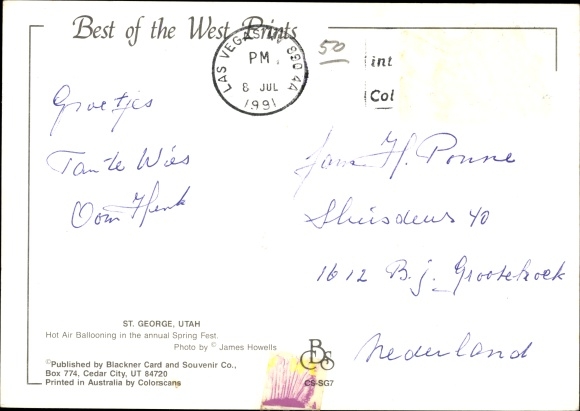 Best of the West Prints
LAS VEGAS, NV 890 4A
PM
8 JUL
1991
50
int
Col
Groetjes
Tante Wies
Oom Henk
Fam. H. Ponne
Sluisdeur 40
1612 B.j. Grootebroek
Nederland
ST. GEORGE, UTAH
Hot Air Ballooning in the annual Spring Fest.
Photo by © James Howells
©Published by Blackner Card and Souvenir Co.,
Box 774, Cedar City, UT 84720
Printed in Australia by Colorscans
CS-SG7